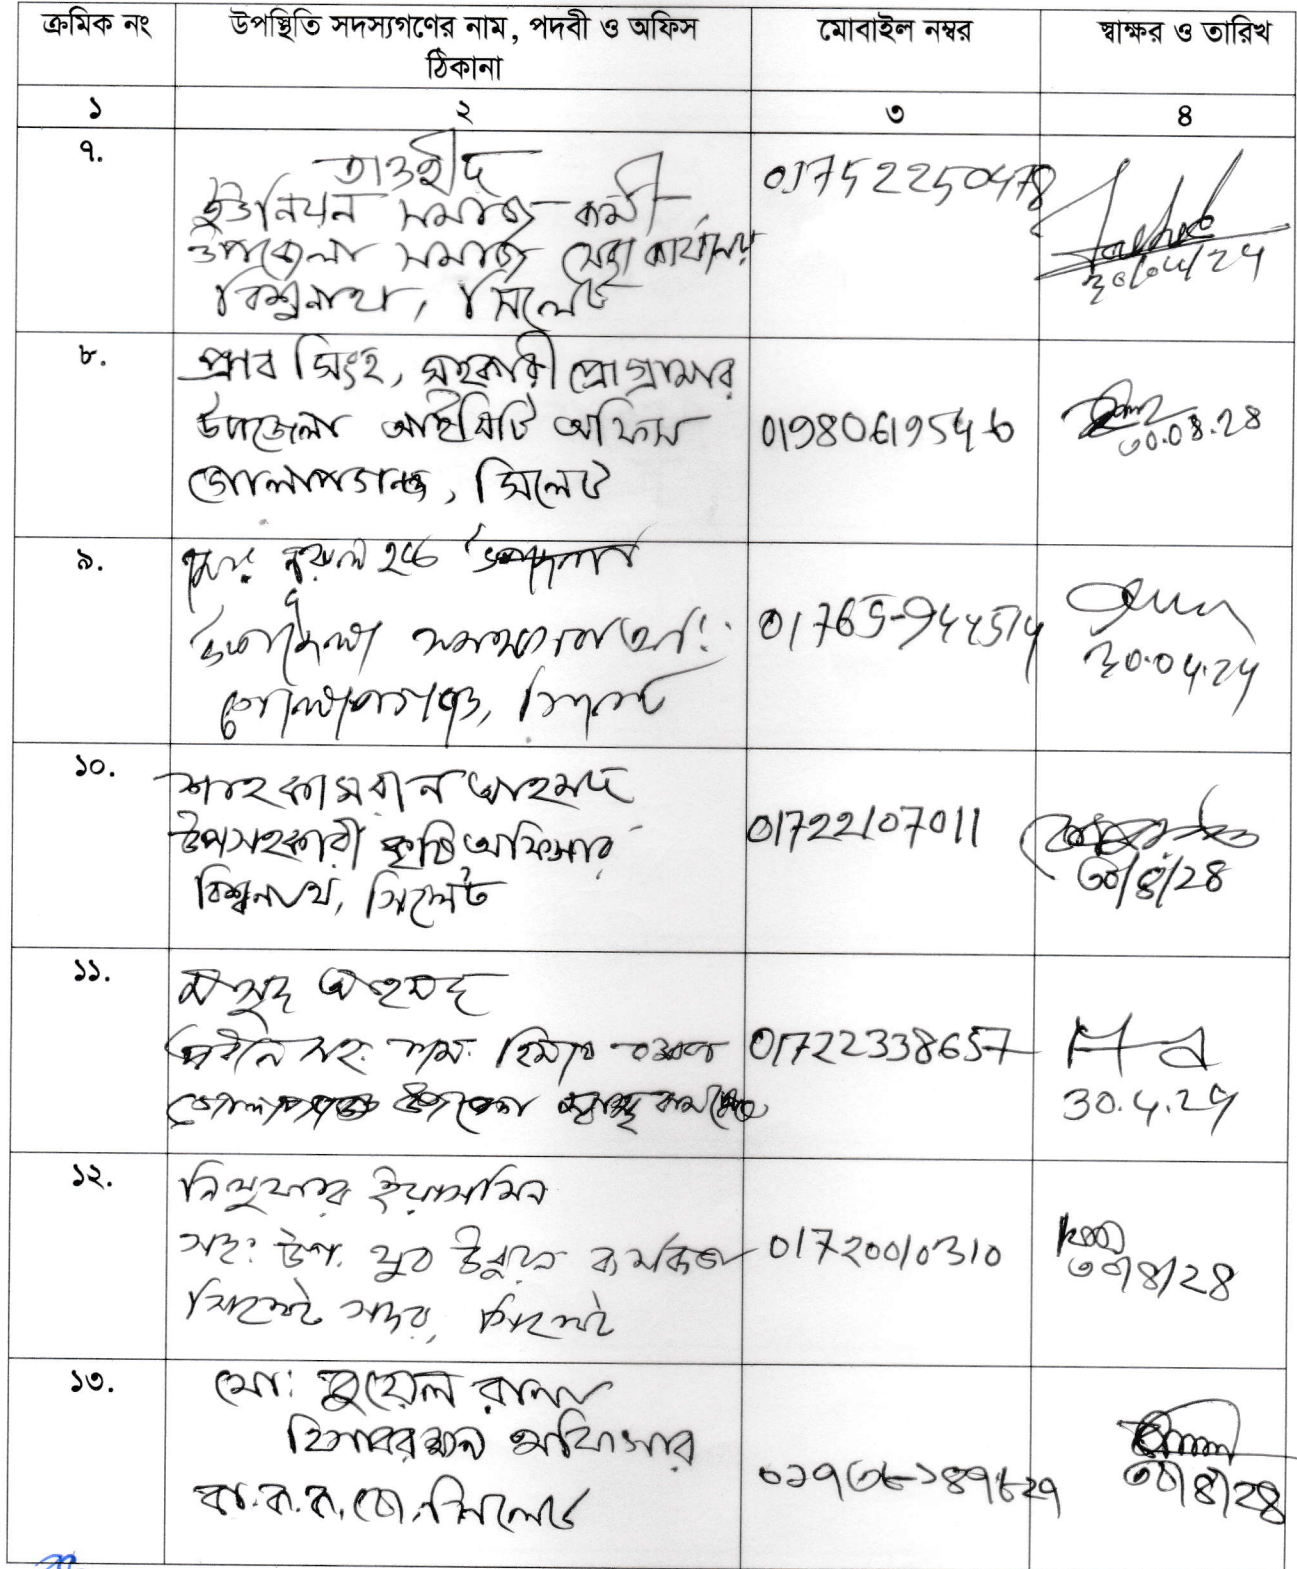 ক্রমিক নং
উপস্থিতি সদস্যগণের নাম, পদবী ও অফিস
ঠিকানা
মোবাইল নম্বর
স্বাক্ষর ও তারিখ
১
২
৩
৪
৭.
তাওহীদ
ইউনিয়ন সমাজ কর্মী
উপজেলা সমাজ সেবা কার্যালয়
বিশ্বনাথ, সিলেট
01752250478
30/04/24
৮.
প্রাব সিংহ, সহকারী প্রোগ্রামার
উপজেলা আইসিটি অফিস
গোলাপগঞ্জ, সিলেট
01980619546
৩০.০৪.২৪
৯.
নুরুল হক
উপজেলা
গোলাপগঞ্জ, সিলেট
01765-944514
30.04.24
১০.
শাহ কামরান আহমদ
উপসহকারী কৃষি অফিসার
বিশ্বনাথ, সিলেট
01722107011
৩০/৪/২৪
১১.
মাসুদ আহমদ
হিসাব
গোলাপগঞ্জ উপজেলা স্বাস্থ্য
01722338657
30.4.24
১২.
নিলুফার ইয়াসমিন
সহ: উপ. যুব উন্নয়ন কর্মকর্তা
সিলেট সদর, সিলেট
01720010310
৩০/৪/২৪
১৩.
মো: জুয়েল রানা
হিসাবরক্ষণ অফিসার
সিলেট
৩০/৪/২৪